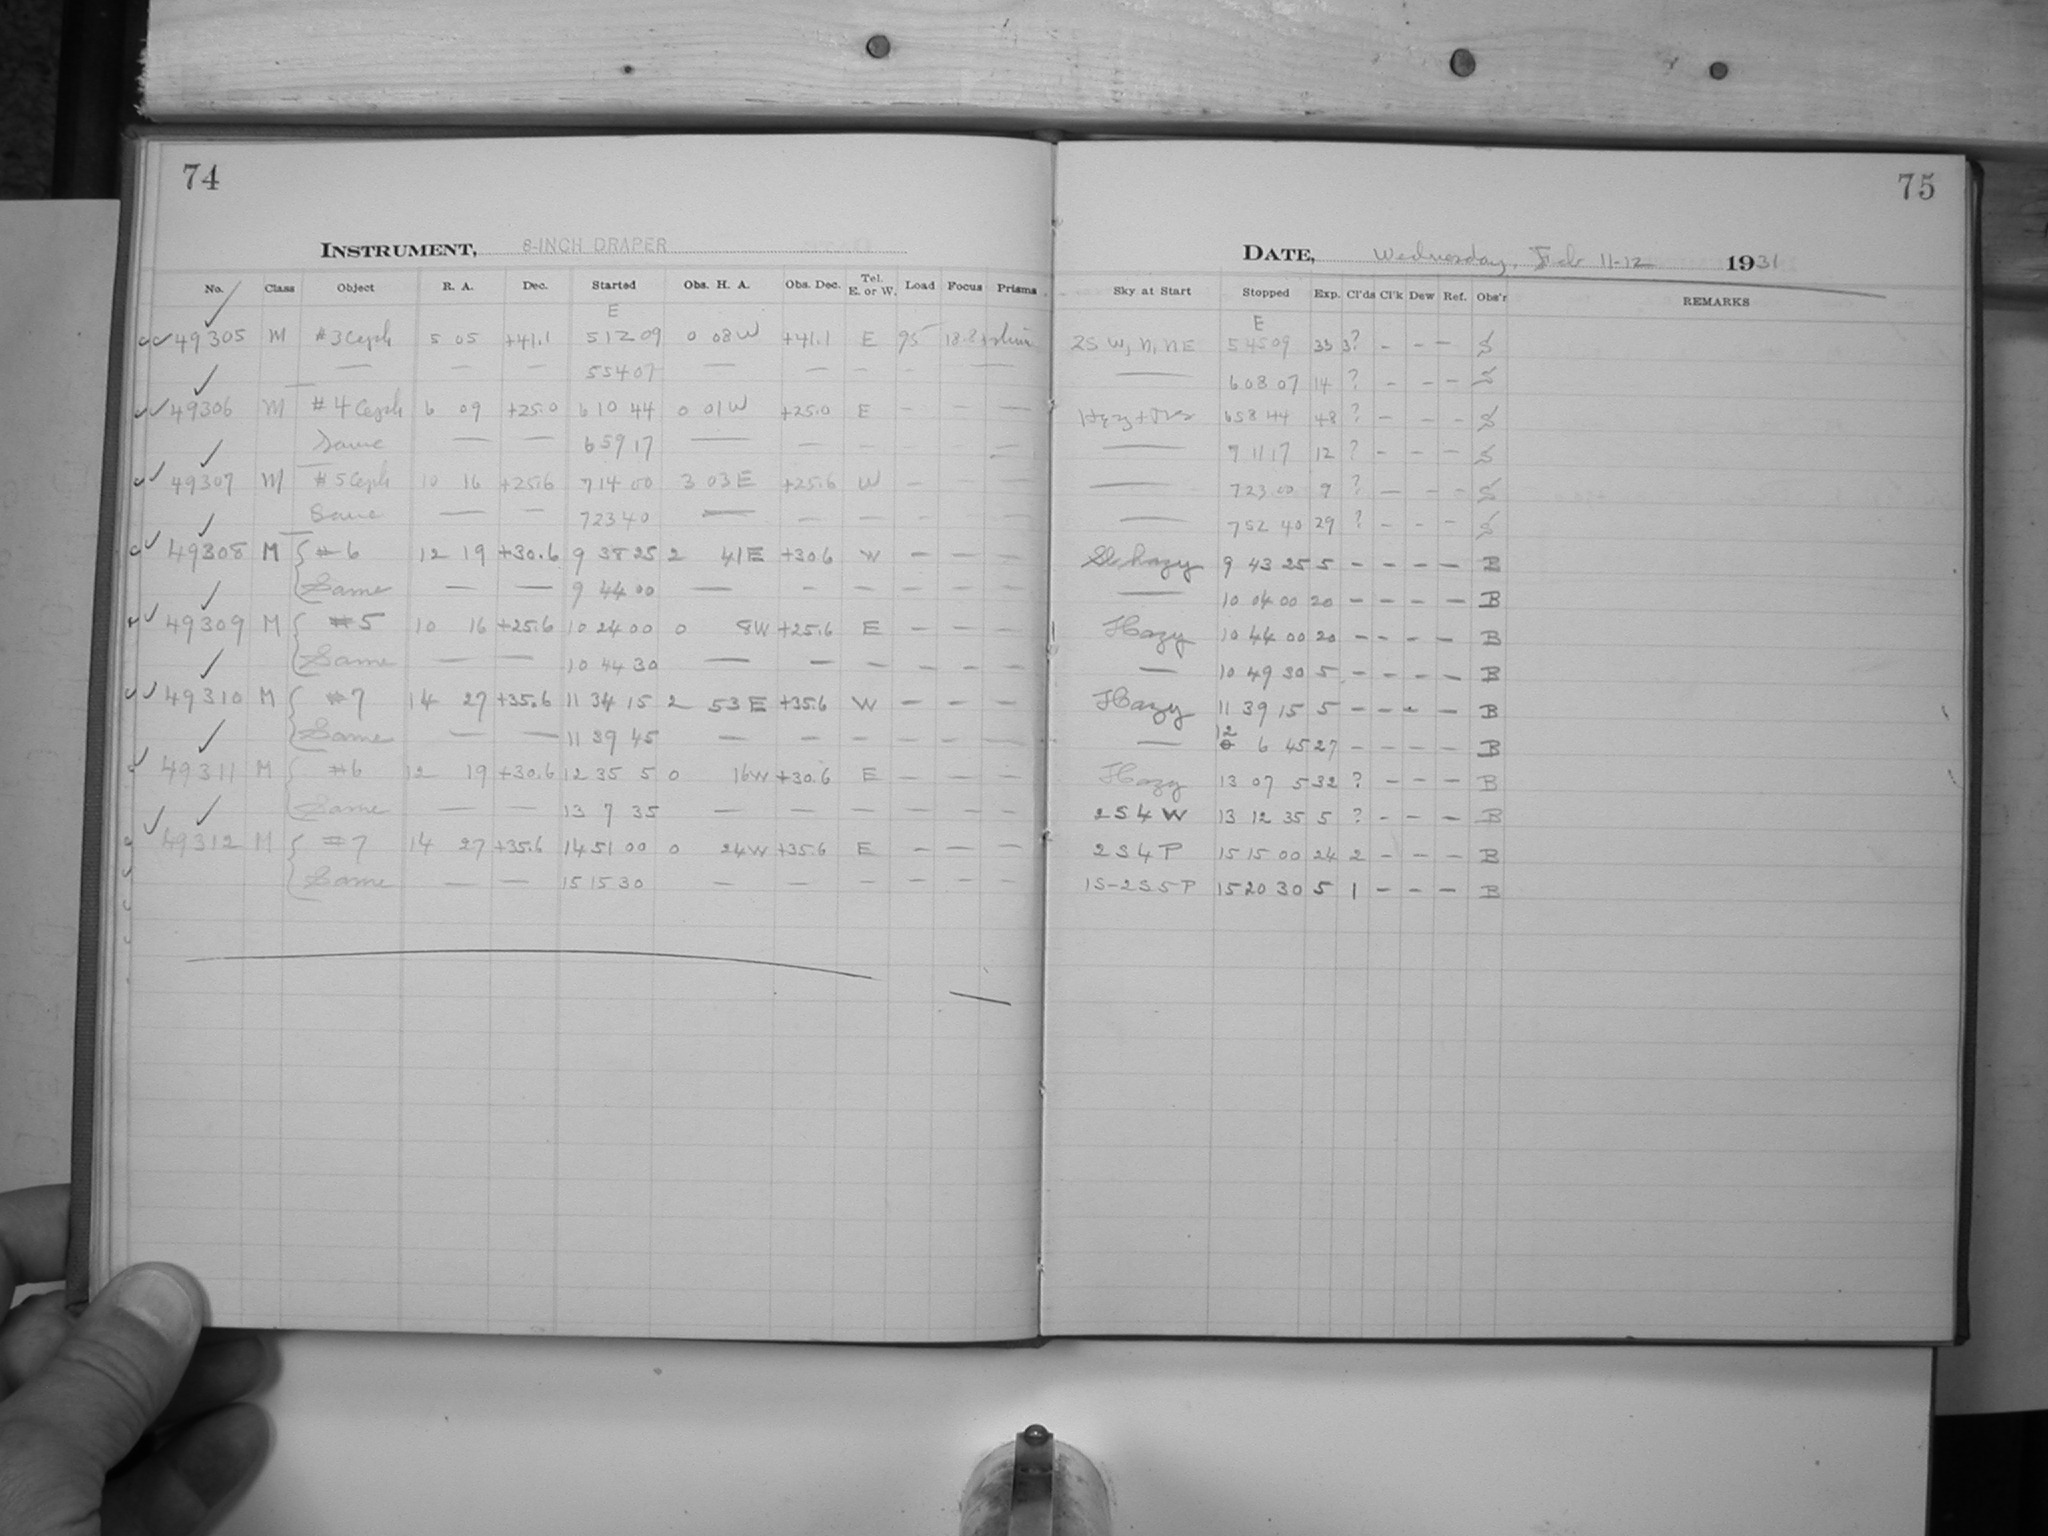 74
INSTRUMENT, 8-INCH DRAPER
No. Class Object R. A. Dec. Started Obs. H. A. Obs. Dec. Tel. E. or W. Load Focus Prisms
E
49305 M #3 Ceph 5 05 +41.1 5 12 09 0 08 W +41.1 E 95 18.8
— — — 5 54 07 — — — — — —
49306 M #4 Ceph 6 09 +25.0 6 10 44 0 01 W +25.0 E — — —
Same — — 6 59 17 — — — — — —
49307 M #5 Ceph 10 16 +25.6 7 14 00 3 03 E +25.6 W —
Same — — 7 23 40 — — — — — —
49308 M #6 12 19 +30.6 9 38 25 2 41 E +30.6 W — — —
Same — — 9 44 00 — — — — — —
49309 M #5 10 16 +25.6 10 24 00 0 8 W +25.6 E — — —
Same — — 10 44 30 — — — — — —
49310 M #7 14 27 +35.6 11 34 15 2 53 E +35.6 W — — —
Same — — 11 39 45 — — — — — —
49311 M #6 12 19 +30.6 12 35 5 0 16 W +30.6 E — — —
Same — — 13 7 35 — — — — — —
49312 M #7 14 27 +35.6 14 51 00 0 24 W +35.6 E — — —
Same — — 15 15 30 — — — — — —
75
DATE, Wednesday, Feb 11-12 1931
Sky at Start Stopped Exp. Cl'ds Cl'k Dew Ref. Obs'r REMARKS
E
2S W, N, NE 5 45 09 33 3? — — — S
— 6 08 07 14 ? — — — S
6 58 44 48 ? — — — S
— 9 11 17 12 ? — — — S
— 7 23 00 9 ? — — — S
— 7 52 40 29 ? — — — S
Sl. hazy 9 43 25 5 — — — — B
— 10 04 00 20 — — — — B
Hazy 10 44 00 20 — — — — B
— 10 49 30 5 — — — — B
Hazy 11 39 15 5 — — — — B
— 12 6 45 27 — — — — B
Hazy 13 07 5 32 ? — — — B
2S4W 13 12 35 5 ? — — — B
2S4P 15 15 00 24 2 — — — B
1S-2S5P 15 20 30 5 1 — — — B